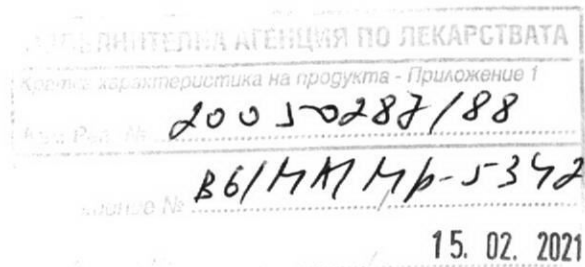 ИЗПЪЛНИТЕЛНА АГЕНЦИЯ ПО ЛЕКАРСТВАТА
Кратка характеристика на продукта - Приложение 1
Рег. № 20050287/88
№ B6/MA/Mp-5342
15. 02. 2021